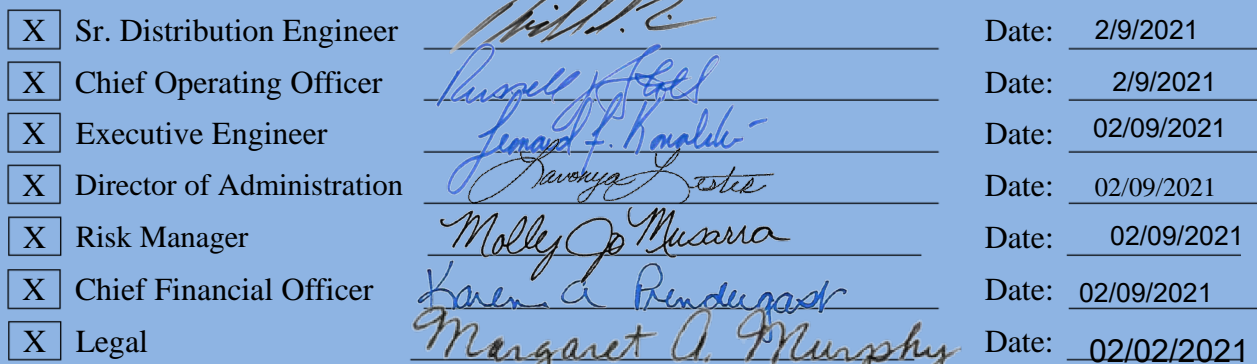 X Sr. Distribution Engineer Date: 2/9/2021
X Chief Operating Officer Russell J Stoll Date: 2/9/2021
X Executive Engineer Leonard F. Date: 02/09/2021
X Director of Administration Lavonya Lester Date: 02/09/2021
X Risk Manager Molly Jo Musarra Date: 02/09/2021
X Chief Financial Officer Karen A Prendergast Date: 02/09/2021
X Legal Margaret A. Murphy Date: 02/02/2021